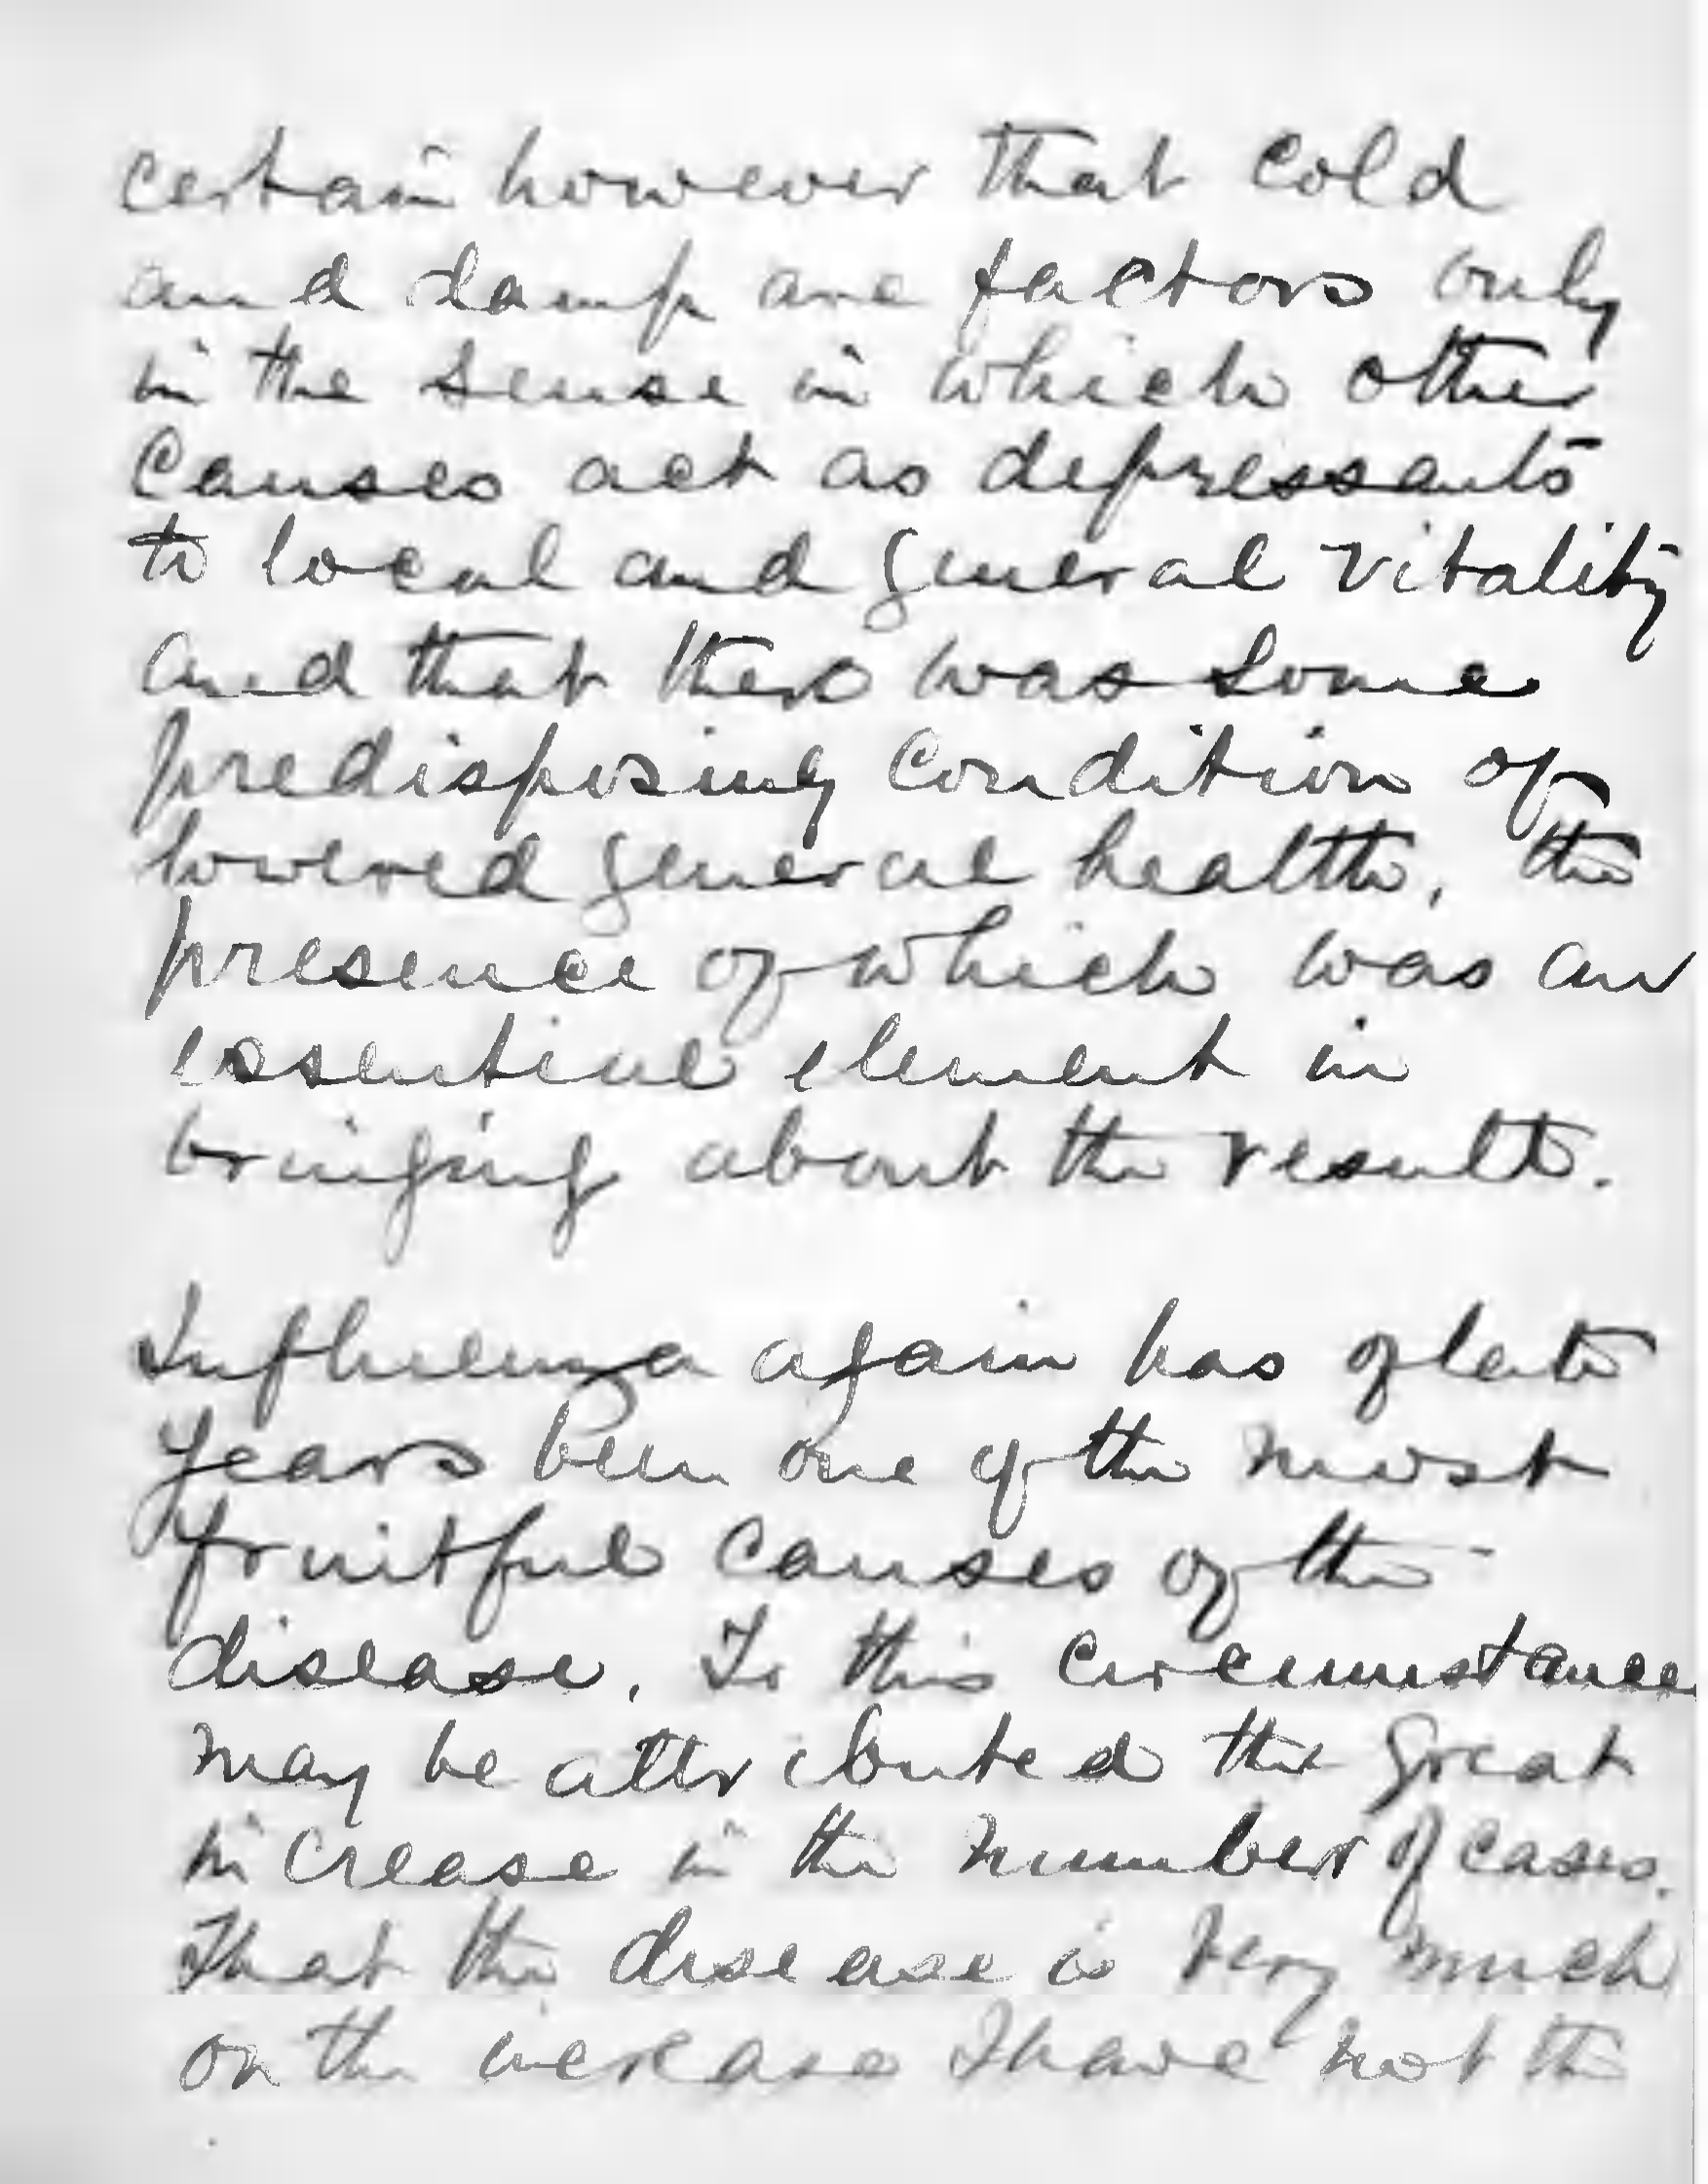 certain however that cold
and damp are factors only
in the sense in which other
causes act as depressants
to local and general vitality
and that there was some
predisposing condition of
lowered general health, the
presence of which was an
essential element in
bringing about the result.
Influenza again has of late
years been one of the most
fruitful causes of the
disease. To this circumstance
may be attributed the great
increase in the number of cases.
That the disease is very much
on the increase I have not the